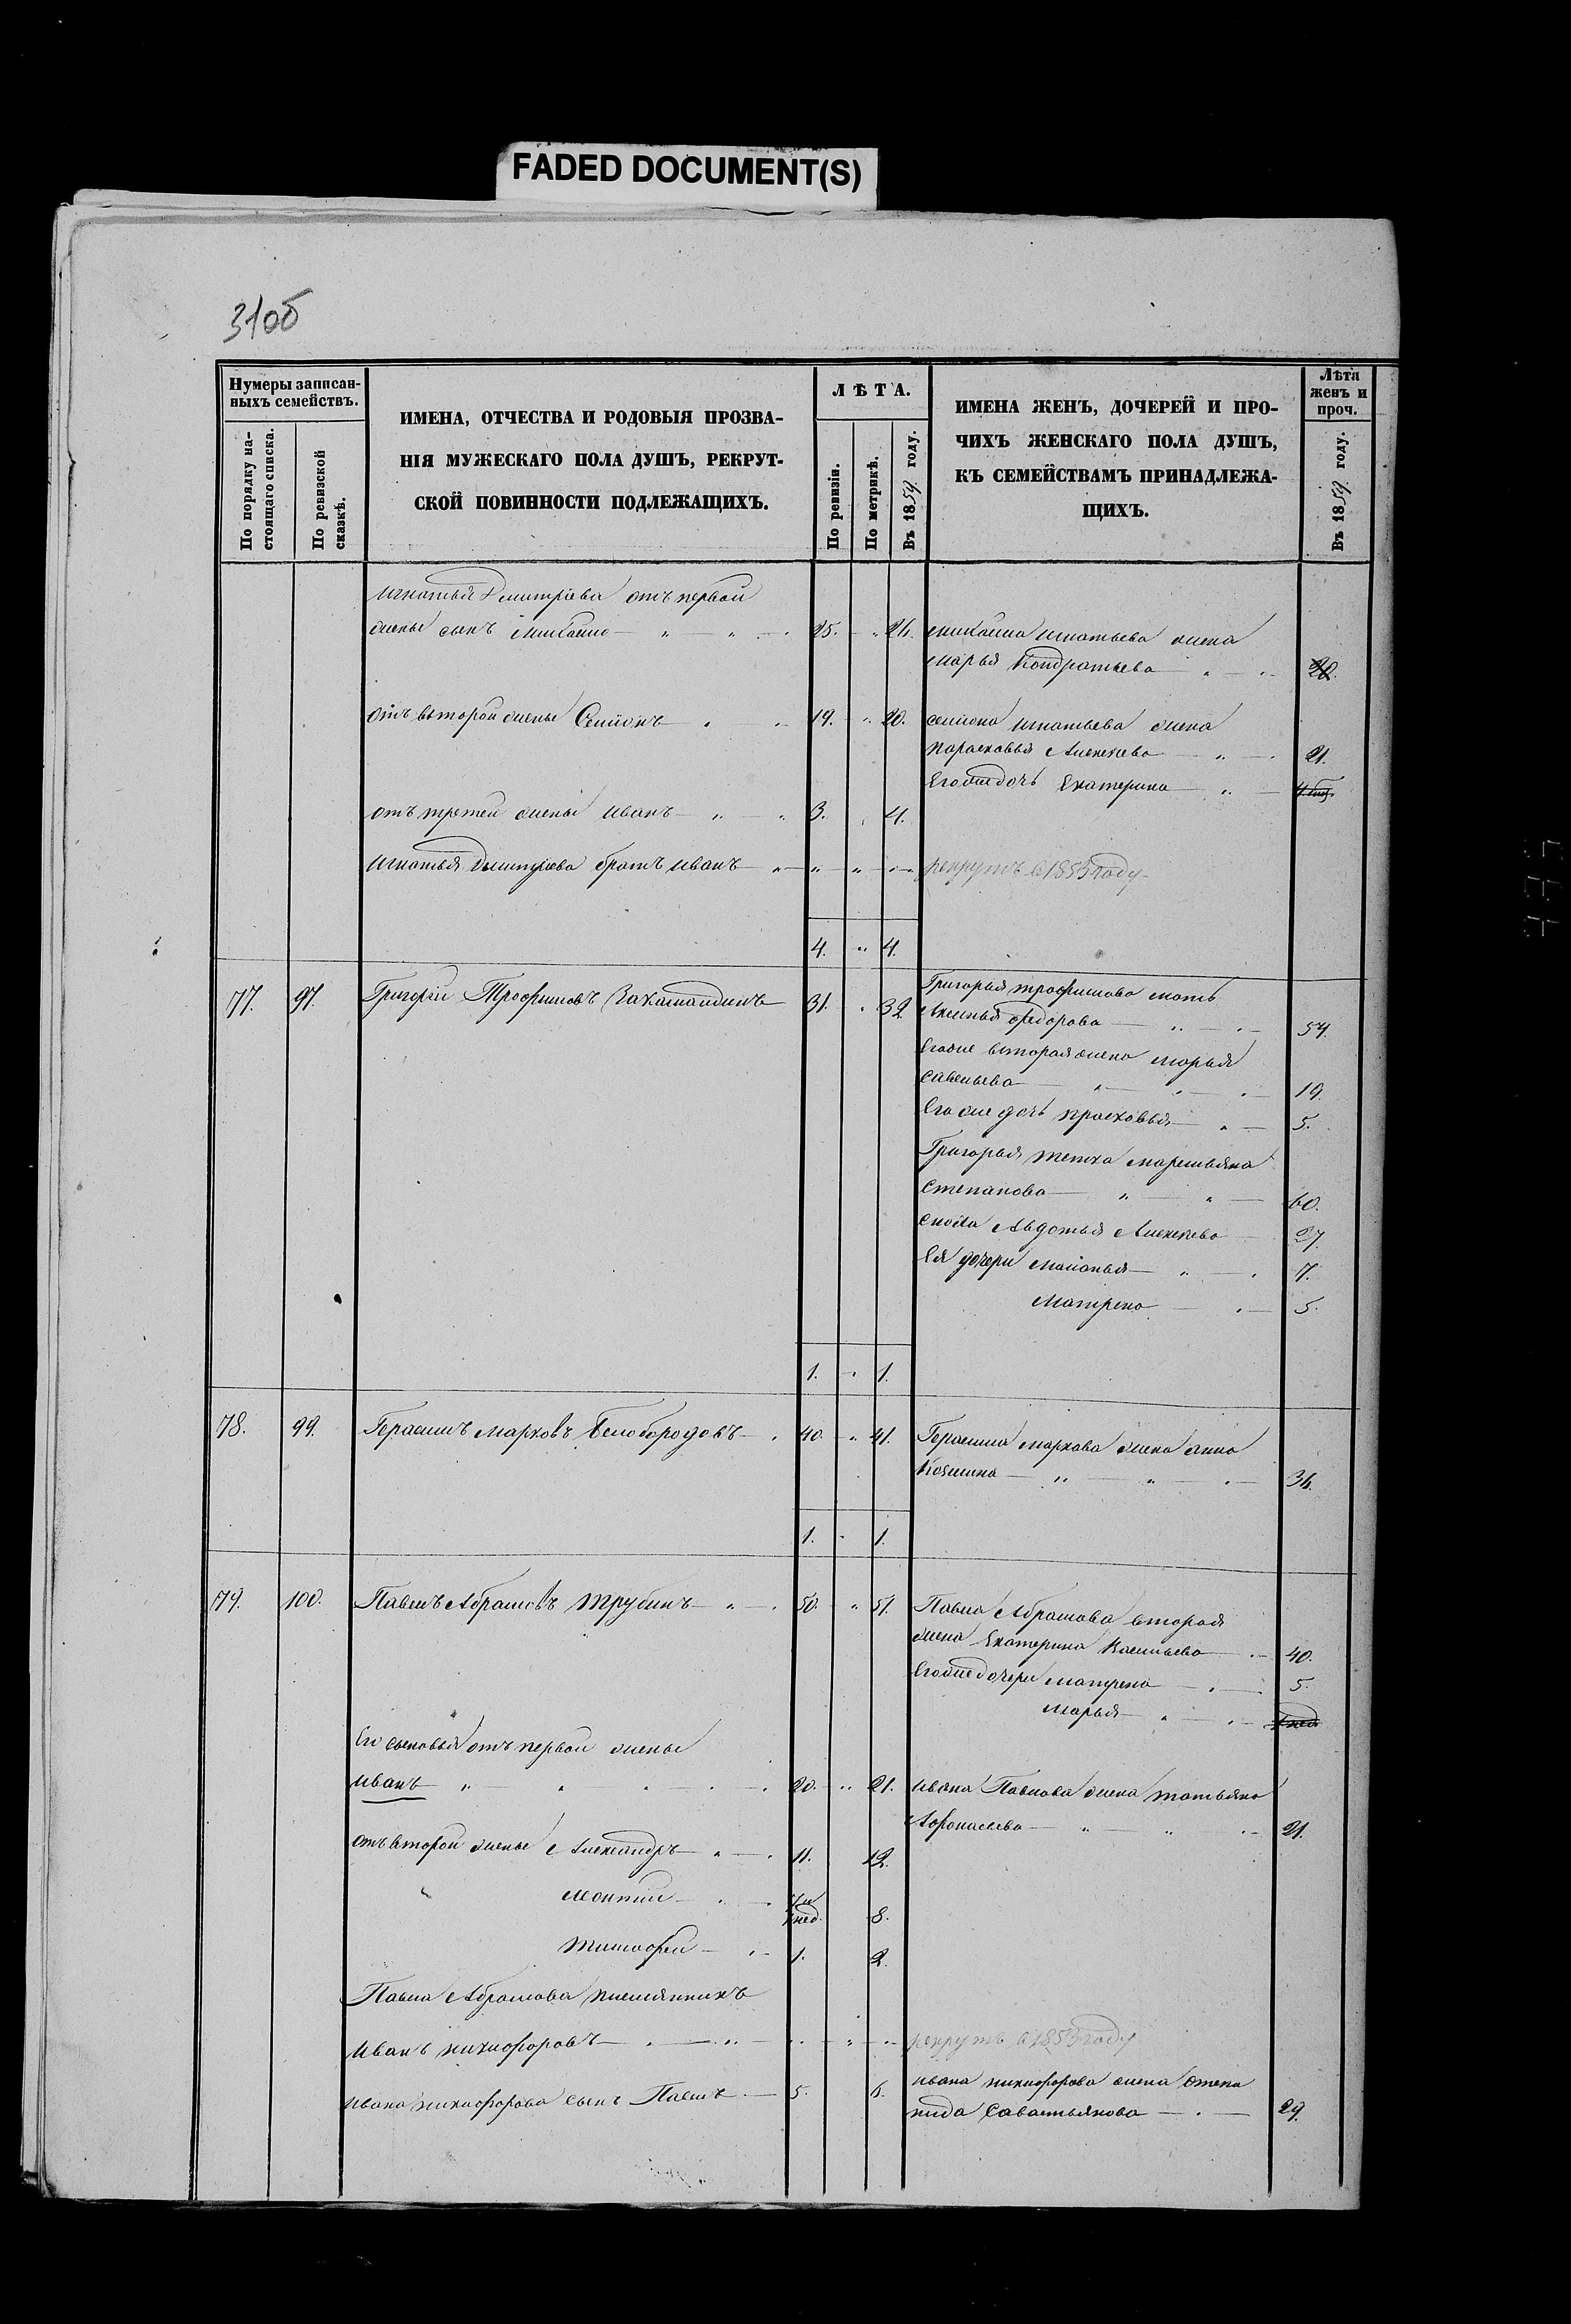 FADED DOCUMENT(S)
31об
Нумеры записан-
ныхъ семействъ.
По порядку на-
стоящаго списка.
По ревизской
сказкѣ.
ИМЕНА, ОТЧЕСТВА И РОДОВЫЯ ПРОЗВА-
НІЯ МУЖЕСКАГО ПОЛА ДУШЪ, РЕКРУТ-
СКОЙ ПОВИННОСТИ ПОДЛЕЖАЩИХЪ.
ЛѢТА.
По ревизіи.
По метрикѣ.
Въ 1859 году.
ИМЕНА ЖЕНЪ, ДОЧЕРЕЙ И ПРО-
ЧИХЪ ЖЕНСКАГО ПОЛА ДУШЪ,
КЪ СЕМЕЙСТВАМЪ ПРИНАДЛЕЖА-
ЩИХЪ.
Лѣта
женъ и
проч.
Въ 1859 году.
Игнатья Дмитріева отъ первой
жены сынъ Михайло 25. 26. Михайла Игнатьева жена
Марья Кондратьева
отъ второй жены Семіонъ 19. 20. Семіона Игнатьева жена
Парасковья Алексеева 21.
Егоже дочь Екатерина
отъ третей жены Иванъ 3. 4.
Игнатья Дмитріева братъ Иванъ рекрутъ в 1853 году
4. 4.
77. 97. Григорій Трофимовъ 31. 32. Григорья Трофимова мать
Федорова 54.
Егоже вторая жена Марья
Савельева 19.
Егоже дочь Прасковья 5.
Григорья тетка Маремьяна
Степанова 60.
Сноха Авдотья Алексеева 27.
Ея дочери Маланья 7.
Матрена 5.
1. 1.
78. 99. Герасимъ Марковъ Белобородовъ 40. 41. Герасима Маркова жена Анна
Козмина 36.
1. 1.
79. 100. Павелъ Абрамовъ Трубинъ 50. 51. Павла Абрамова вторая
жена Екатерина Васильева 40.
Егоже дочери Матрена 5.
Марья
Его сыновья отъ первой жены
Иванъ 20. 21. Ивана Павлова жена Татьяна
Афонасьева 21.
отъ второй жены Александръ 11. 12.
нед. 8.
Тимофей 1. 2.
Павла Абрамова племянникъ
Иванъ Никифоровъ рекрутъ в 1853 году
Ивана Никифорова сынъ Павелъ 5. 6. Ивана Никифорова жена Степа
нида Савастьянова 29.